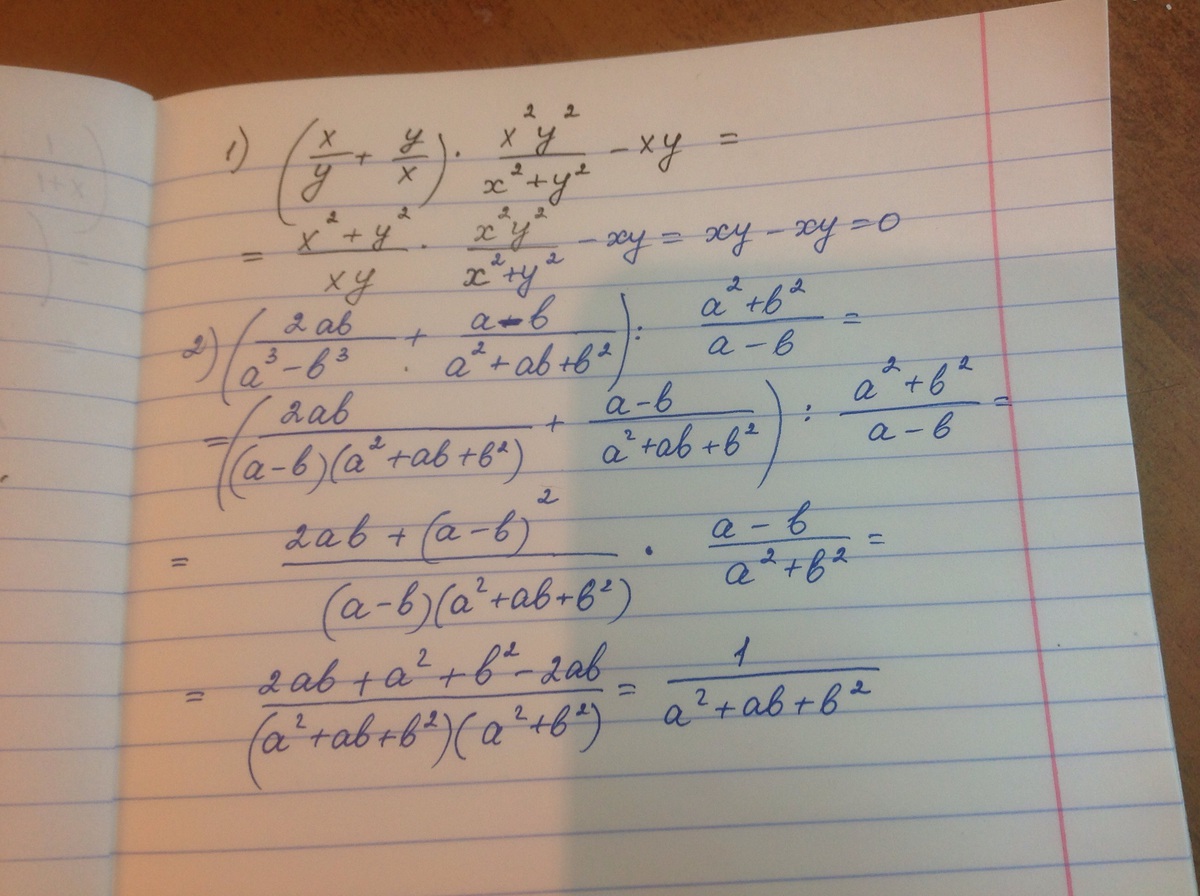 1) (x/y + y/x) · x²y²/(x²+y²) − xy =
= (x²+y²)/(xy) · x²y²/(x²+y²) − xy = xy − xy = 0
2) (2ab/(a³−b³) + (a−b)/(a²+ab+b²)) : (a²+b²)/(a−b) =
= (2ab/((a−b)(a²+ab+b²)) + (a−b)/(a²+ab+b²)) : (a²+b²)/(a−b) =
= (2ab+(a−b)²)/((a−b)(a²+ab+b²)) · (a−b)/(a²+b²) =
= (2ab+a²+b²−2ab)/((a²+ab+b²)(a²+b²)) = 1/(a²+ab+b²)